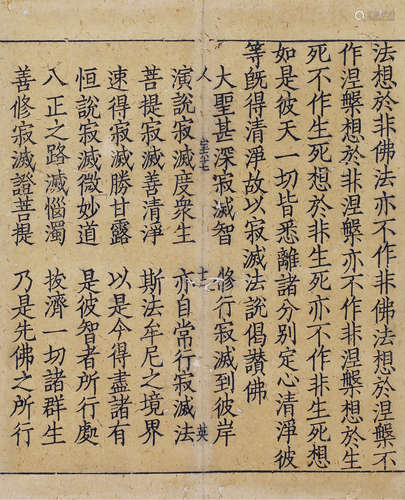 法想於非佛法亦不作非佛法想於涅槃不
作涅槃想於非涅槃亦不作非涅槃想於生
死不作生死想於非生死亦不作非生死想
如是彼天一切皆悉離諸分別定心清淨彼
等旣得清淨故以寂滅法說偈讃佛
大聖甚深寂滅智 修行寂滅到彼岸
人 英
演說寂滅度衆生 亦自常行寂滅法
菩提寂滅善清淨 斯法牟尼之境界
速得寂滅勝甘露 以是今得盡諸有
恒說寂滅微妙道 是彼智者所行處
八正之路滅惱濁 拔濟一切諸群生
善修寂滅證菩提 乃是先佛之所行